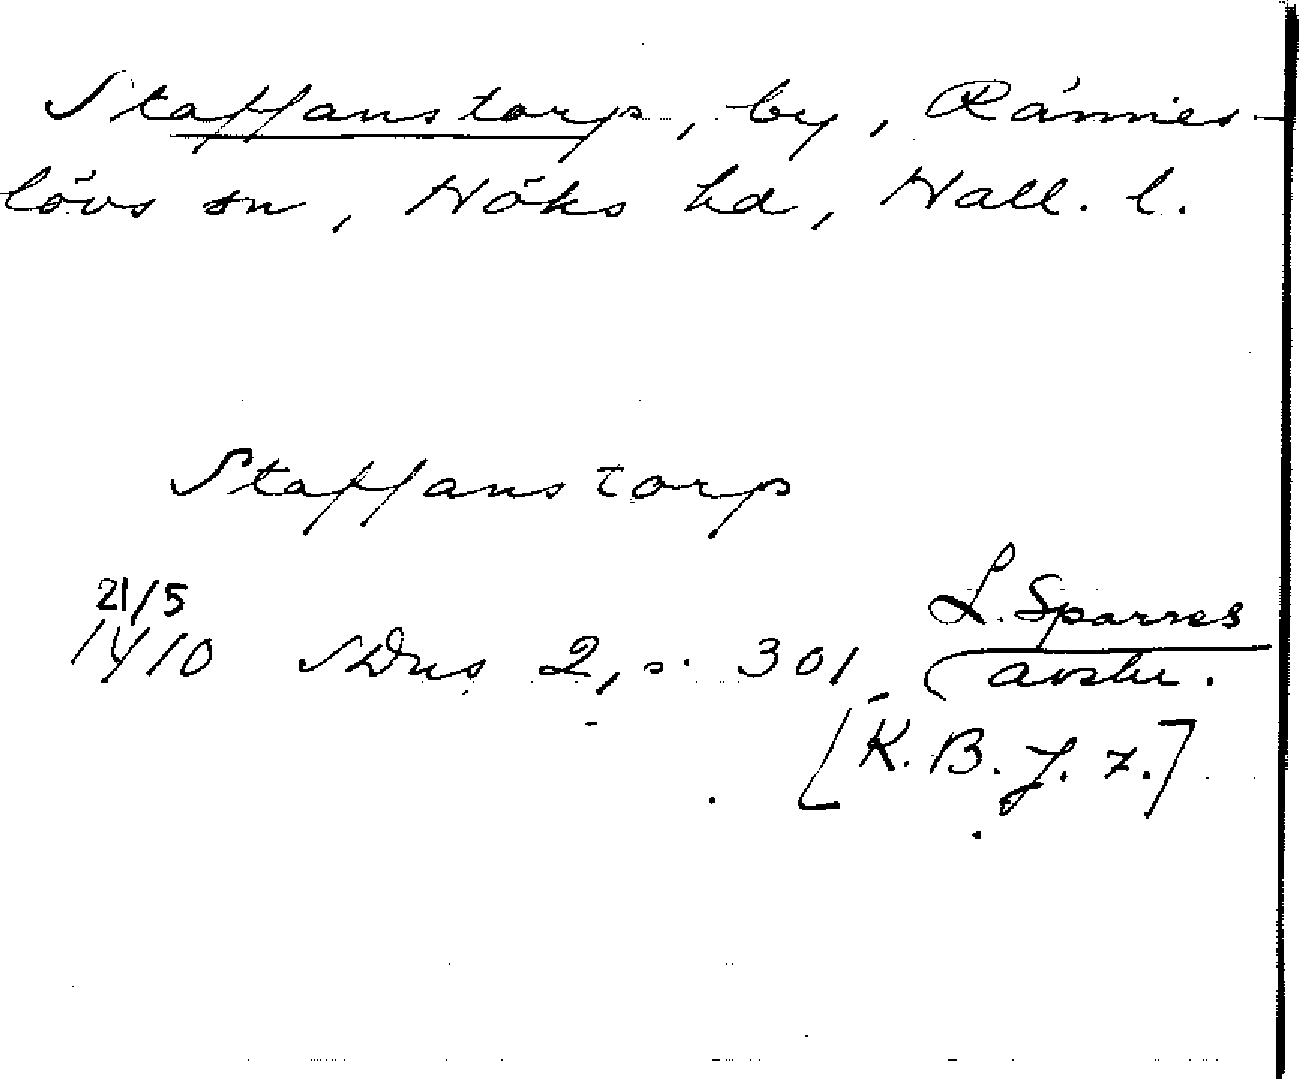 Staffanstorp, by, Rännes-
lövs sn, Höks hd, Hall. l.
Staffanstorp
21/5
1410 SDns 2, s. 301 L. Sparres
(avskr.
[K. B. f. 7.]